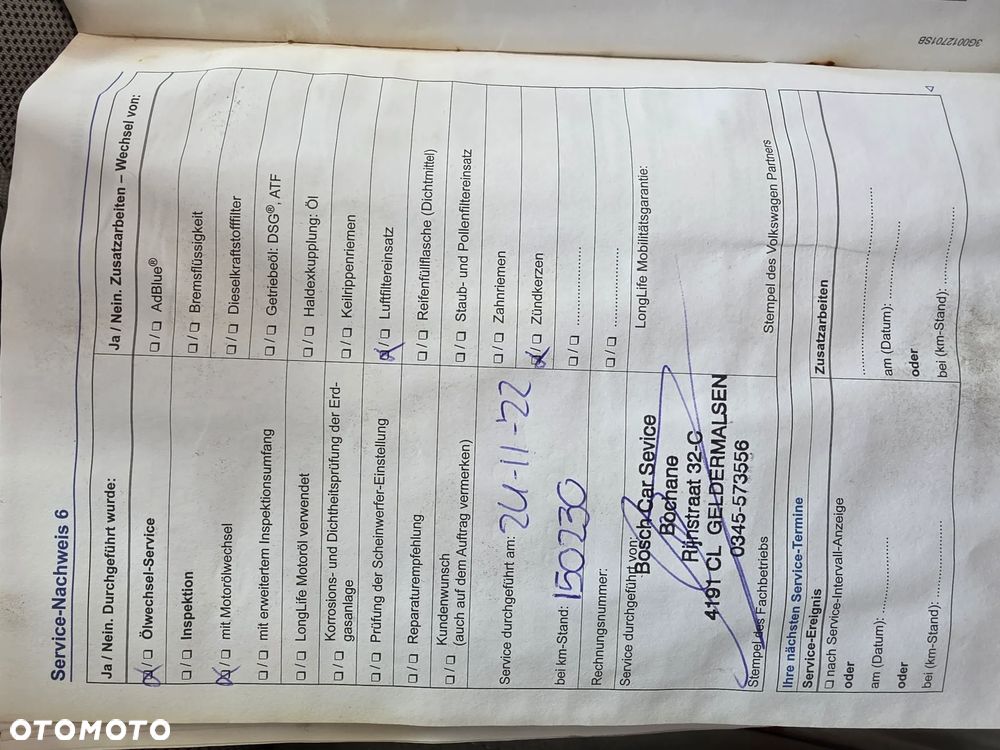 3G0012701SB
Service-Nachweis 6
Ja / Nein. Durchgeführt wurde:
☒/☐ Ölwechsel-Service
☐/☐ Inspektion
☒/☐ mit Motorölwechsel
☐/☐ mit erweitertem Inspektionsumfang
☐/☐ LongLife Motoröl verwendet
☐/☐ Korrosions- und Dichtheitsprüfung der Erd-
gasanlage
☐/☐ Prüfung der Scheinwerfer-Einstellung
☐/☐ Reparaturempfehlung
☐/☐ Kundenwunsch
(auch auf dem Auftrag vermerken)
Ja / Nein. Zusatzarbeiten – Wechsel von:
☐/☐ AdBlue®
☐/☐ Bremsflüssigkeit
☐/☐ Dieselkraftstofffilter
☐/☐ Getriebeöl: DSG®, ATF
☐/☐ Haldexkupplung: Öl
☐/☐ Keilrippenriemen
☒/☐ Luftfiltereinsatz
☐/☐ Reifenfüllflasche (Dichtmittel)
☐/☐ Staub- und Pollenfiltereinsatz
☐/☐ Zahnriemen
☒/☐ Zündkerzen
☐/☐ ..................
☐/☐ ..................
Service durchgeführt am: 24-11-'22
bei km-Stand: 150230
Rechnungsnummer:
Service durchgeführt von:
Bosch Car Sevice
Bochane
Rijnstraat 32-C
4191 CL GELDERMALSEN
0345-573556
Stempel des Fachbetriebs
LongLife Mobilitätsgarantie:
Stempel des Volkswagen Partners
Ihre nächsten Service-Termine
Service-Ereignis
☐ nach Service-Intervall-Anzeige
oder
am (Datum): ..................
oder
bei (km-Stand): ..................
Zusatzarbeiten
..................
am (Datum): ..................
oder
bei (km-Stand): ..................
OTOMOTO